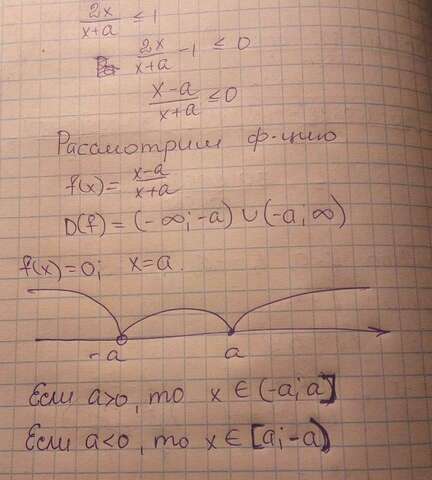 2x/(x+a) ≤ 1
2x/(x+a) - 1 ≤ 0
(x-a)/(x+a) ≤ 0
Расмотрим ф-цию
f(x) = (x-a)/(x+a)
D(f) = (-∞; -a) ∪ (-a; ∞)
f(x)=0; x=a.
-a a
Если a>0, то x ∈ (-a; a]
Если a<0, то x ∈ [a; -a)